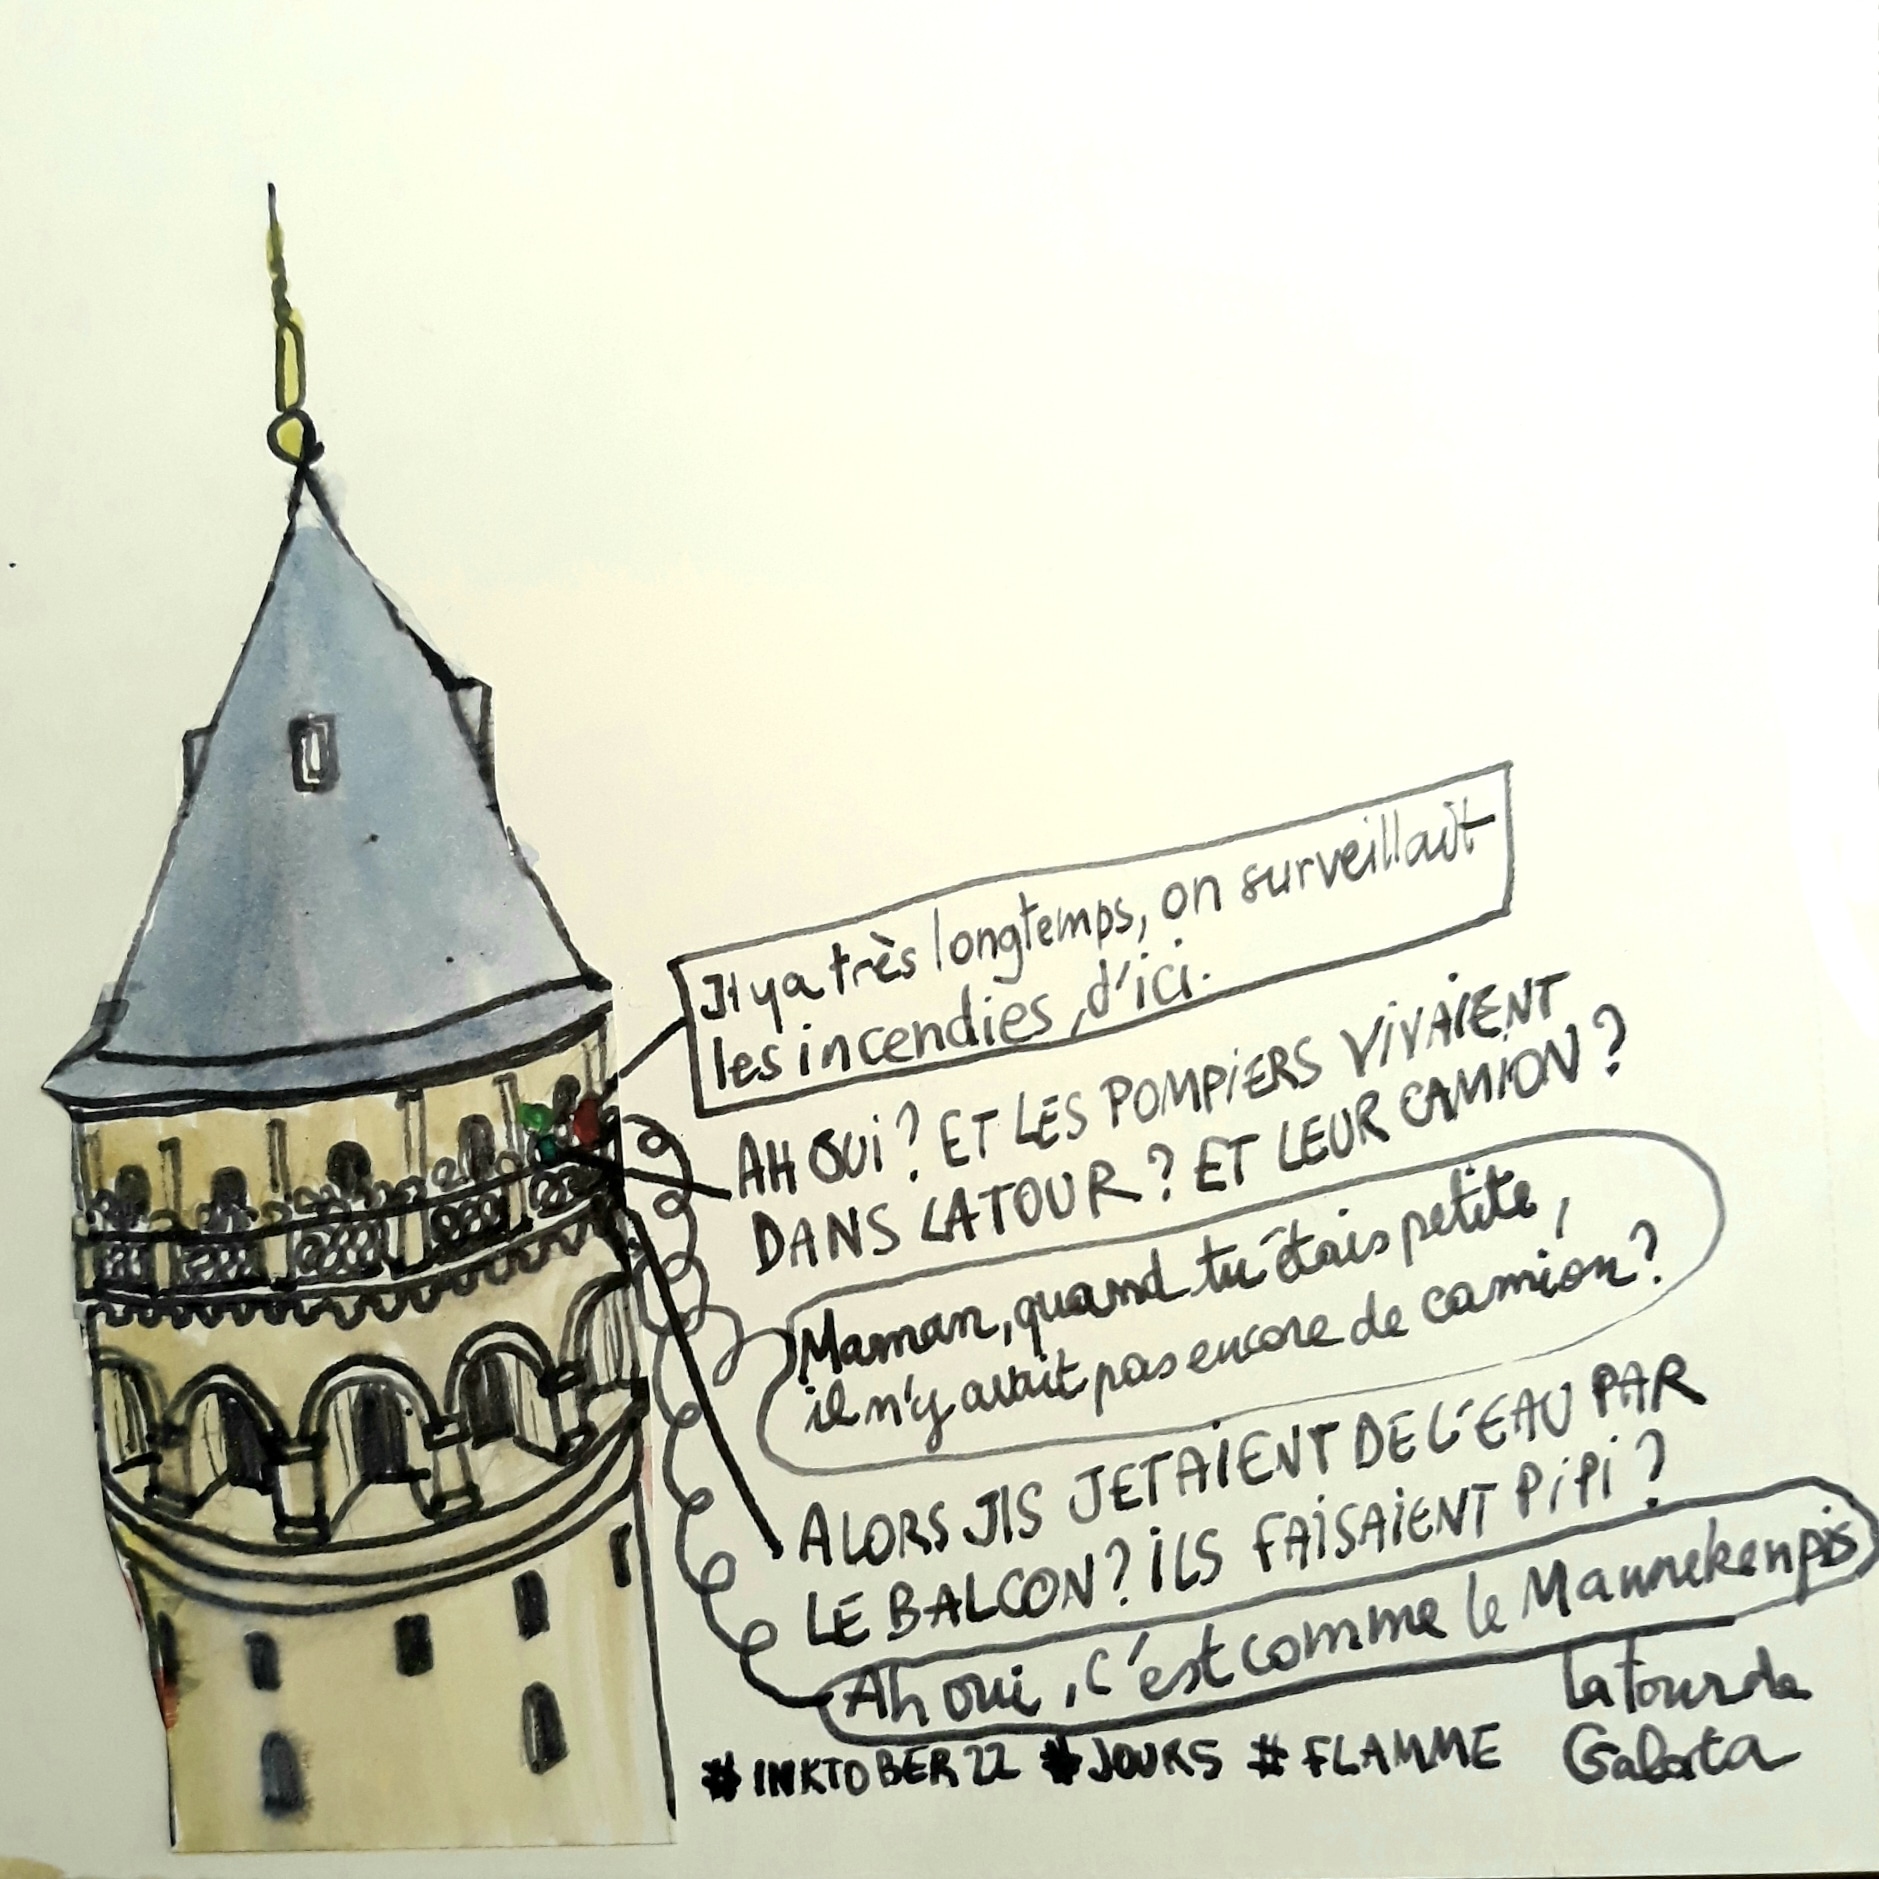 Il y a très longtemps, on surveillait
les incendies, d'ici.
AH OUI? ET LES POMPIERS VIVAIENT
DANS LA TOUR? ET LEUR CAMION?
Maman, quand tu étais petite,
il n'y avait pas encore de camion?
ALORS ILS JETAIENT DE L'EAU PAR
LE BALCON? ILS FAISAIENT PIPI?
Ah oui, c'est comme le Mannekenpis
#INKTOBER22 #JOUR5 #FLAMME
La Tour de
Galata